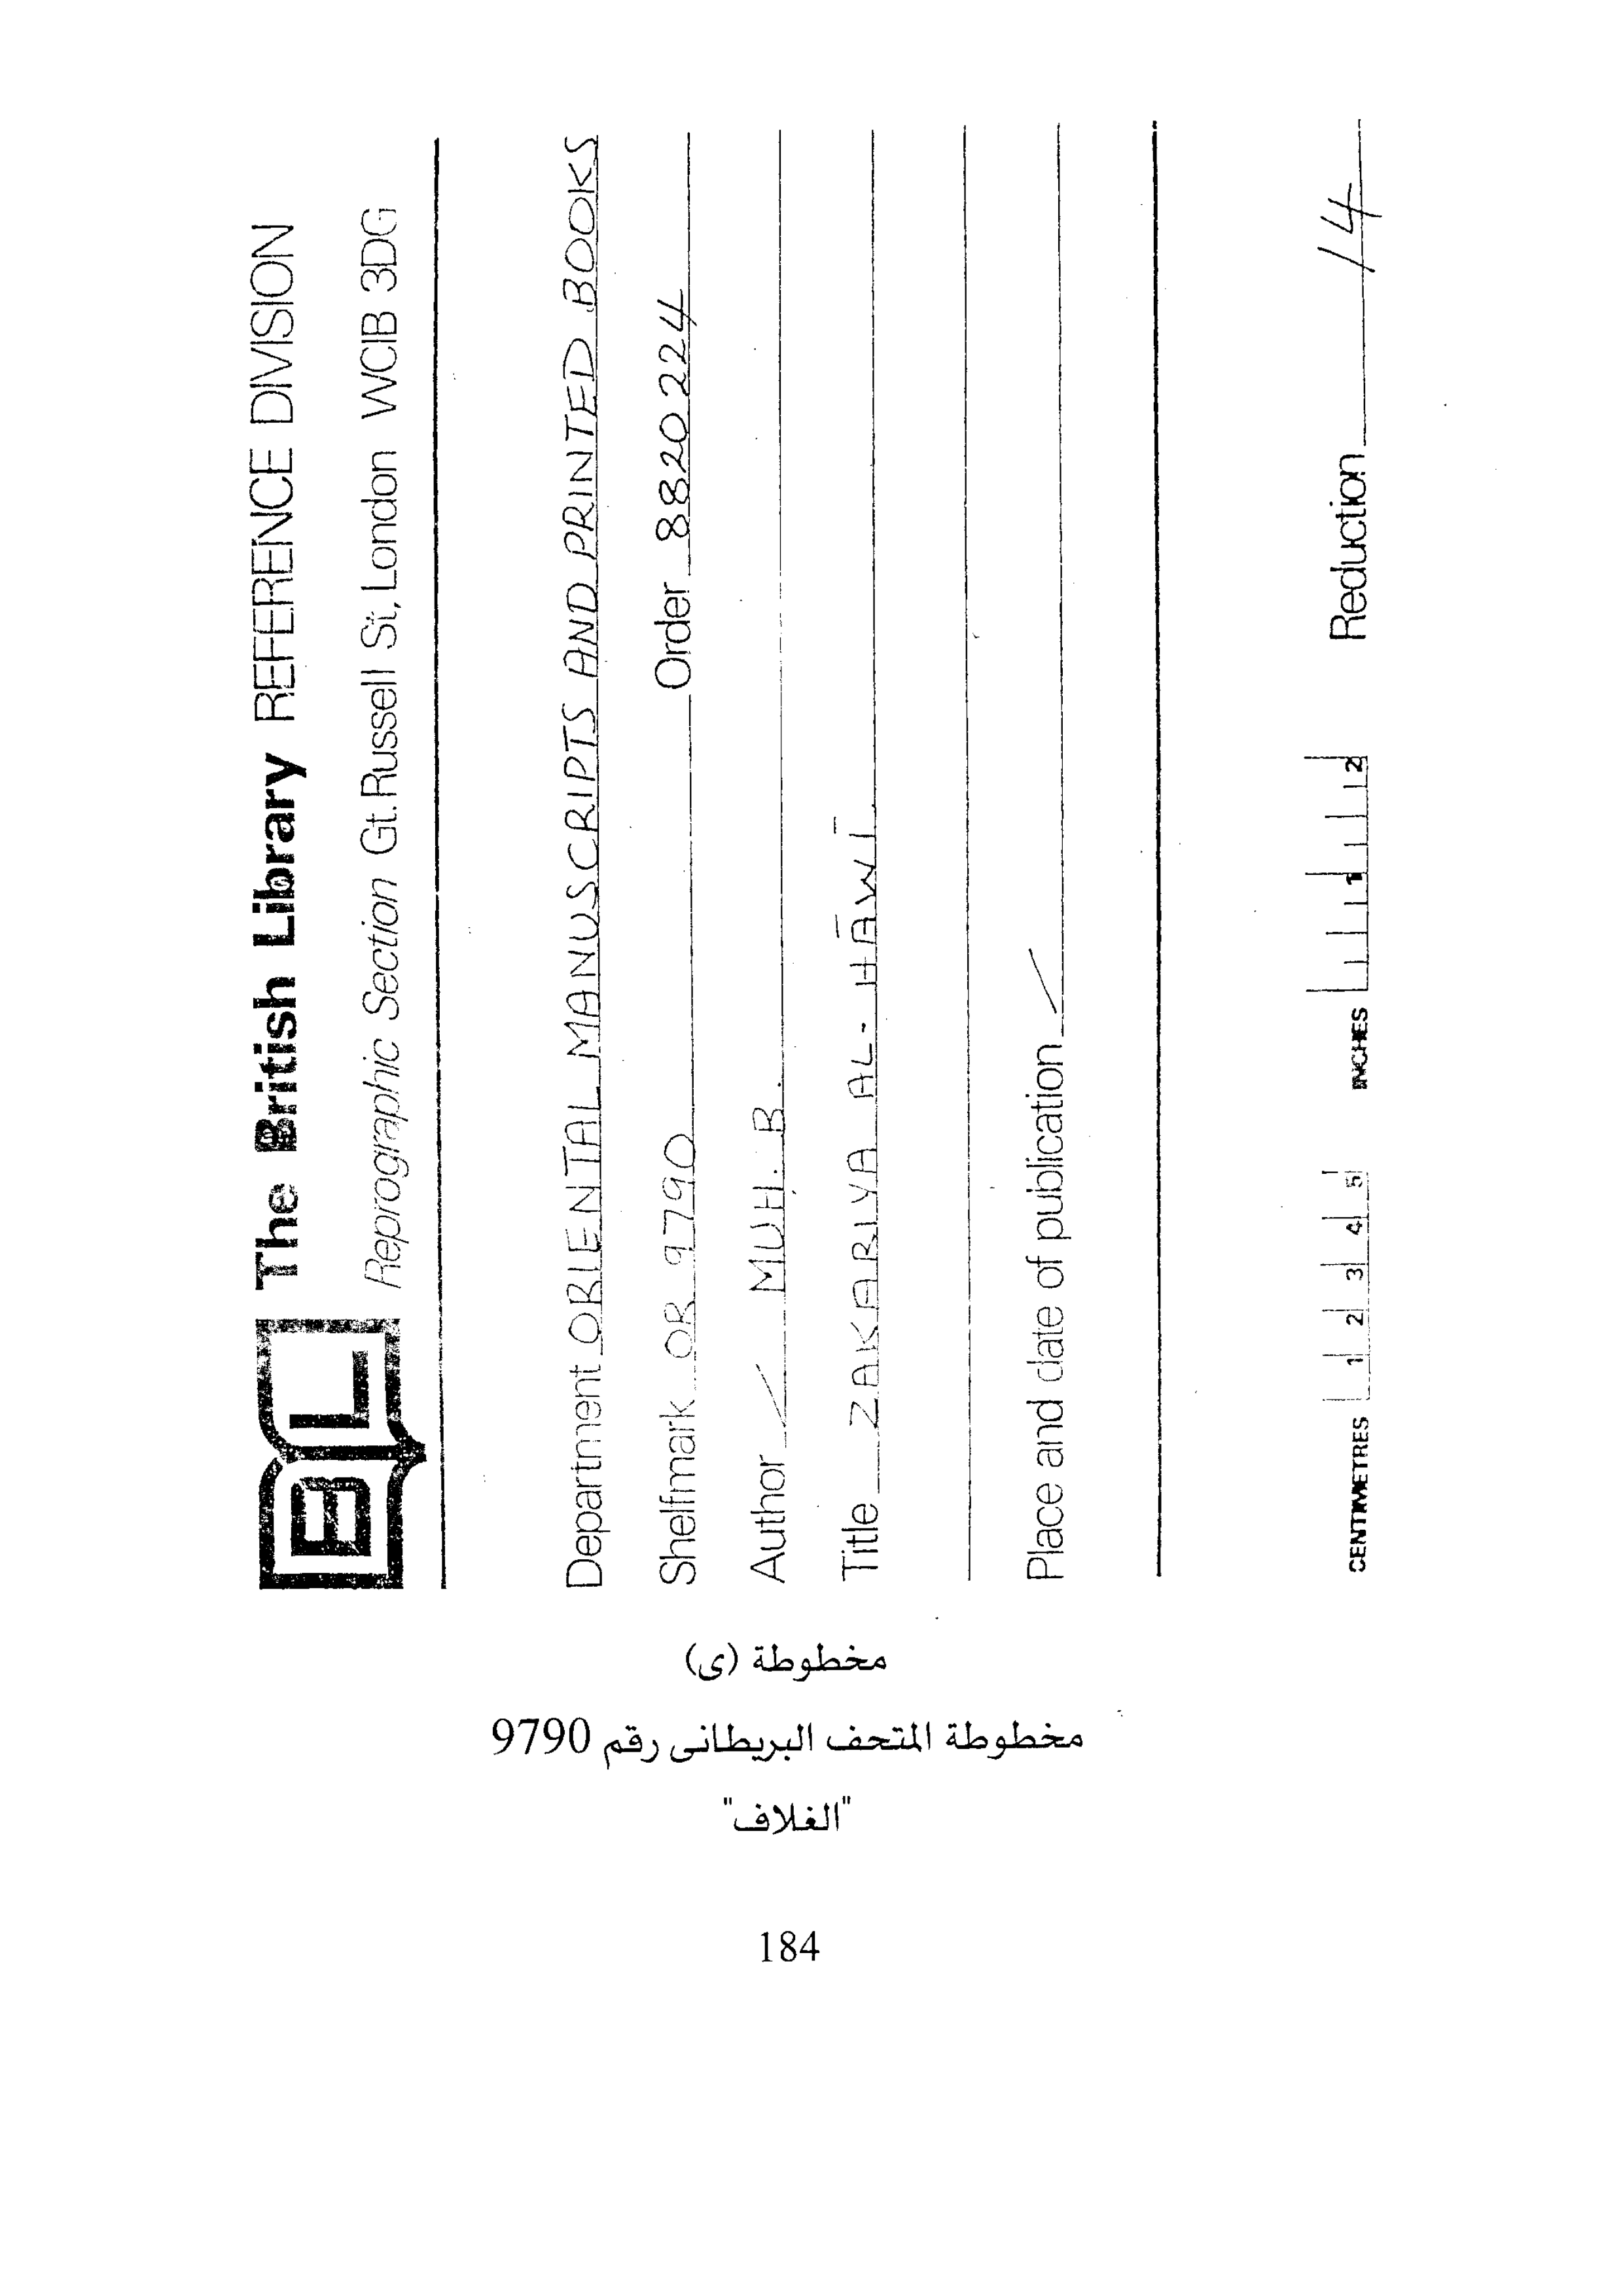 BL The British Library REFERENCE DIVISION
Reprographic Section Gt.Russell St, London WC1B 3DG
Department ORIENTAL MANUSCRIPTS AND PRINTED BOOKS
Shelfmark OR 9790 Order 8820224
Author MUH. B.
Title ZAKARIYA AL-HĀWĪ
Place and date of publication
CENTIMETRES 1 2 3 4 5 INCHES 1 2 Reduction 14
مخطوطة (ى)
مخطوطة المتحف البريطانى رقم 9790
"الغلاف"
184